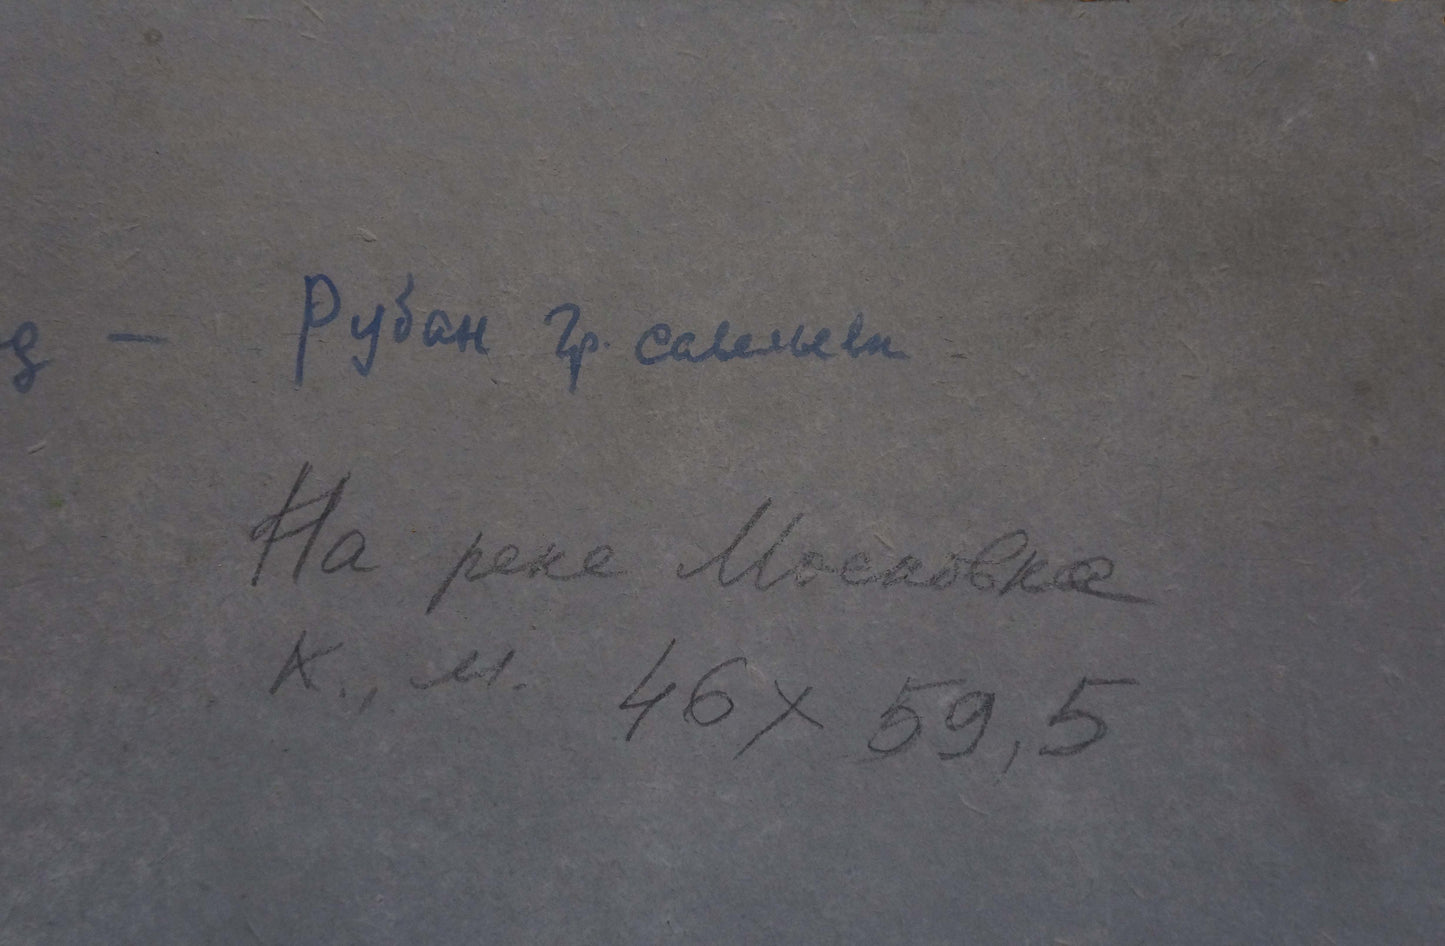 д – Рубан Гр. Савельевич
На реке Московка
К., м. 46 x 59,5